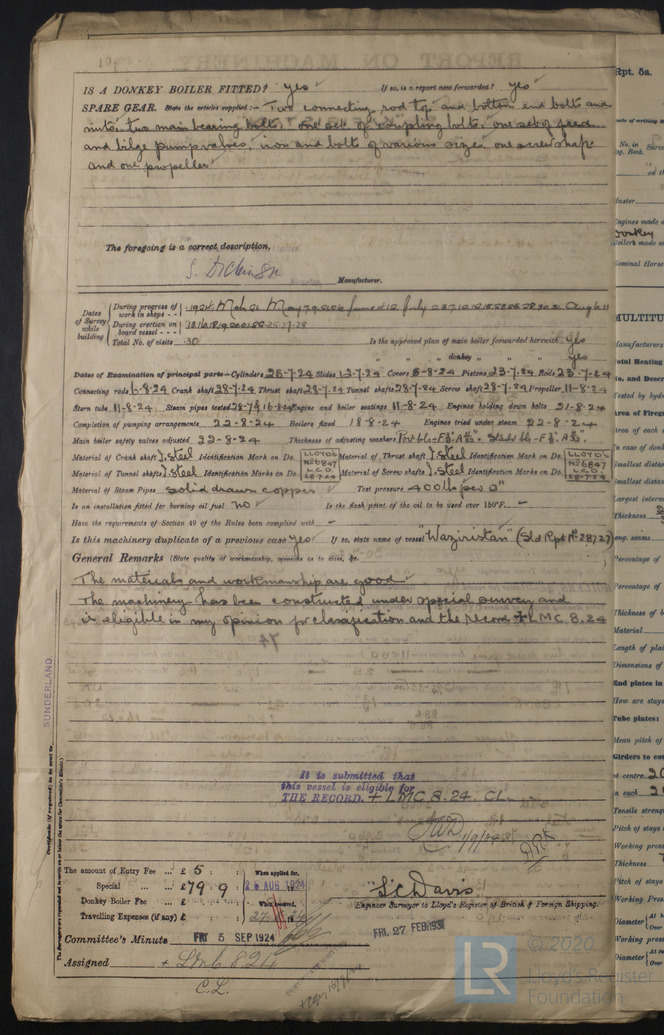 IS A DONKEY BOILER FITTED? Yes If so, is a report now forwarded? Yes
SPARE GEAR. State the articles supplied:- Two connecting rod top and bottom end bolts and
nuts, two main bearing bolts, one set of coupling bolts, one set of feed
and bilge pump valves, iron and bolts of various sizes, one screw shaft
and one propeller
The foregoing is a correct description,
S. Dickinson Manufacturer.
Dates of Survey while building
During progress of work in shops - -
1924 Mch 21 May
During erection on board vessel - - -
Total No. of visits 30
Is the approved plan of main boiler forwarded herewith Yes
" " " donkey " " " Yes
Dates of Examination of principal parts—Cylinders 25-7-24 Slides 12-7-24 Covers 6-8-24 Pistons 23-7-24 Rods 23-7-24
Connecting rods 6-8-24 Crank shaft 28-7-24 Thrust shaft 28-7-24 Tunnel shafts 28-7-24 Screw shaft 28-7-24 Propeller 11-8-24
Stern tube 11-8-24 Steam pipes tested 28-7 & 16-8-24 Engine and boiler seatings 11-8-24 Engines holding down bolts 21-8-24
Completion of pumping arrangements 22-8-24 Boilers fixed 18-8-24 Engines tried under steam 22-8-24
Main boiler safety valves adjusted 22-8-24 Thickness of adjusting washers
Material of Crank shaft I. Steel Identification Mark on Do. Material of Thrust shaft I. Steel Identification Mark on Do.
LLOYDS No 6847 L.C.D. 28-7-24
Material of Tunnel shafts I. Steel Identification Marks on Do. Material of Screw shafts I. Steel Identification Marks on Do.
LLOYDS No 6847 L.C.D. 28-7-24
Material of Steam Pipes solid drawn copper Test pressure 400 lb per □"
Is an installation fitted for burning oil fuel no Is the flash point of the oil to be used over 150°F. -
Have the requirements of Section 49 of the Rules been complied with -
Is this machinery duplicate of a previous case Yes If so, state name of vessel "Waziristan" (Sld Rpt No 28727)
General Remarks (State quality of workmanship, opinions as to class, &c.
The materials and workmanship are good
The machinery has been constructed under special survey and
is eligible in my opinion for classification and the record + LMC 8.24
It is submitted that
this vessel is eligible for
THE RECORD. + LMC 8.24. CL.
The amount of Entry Fee ... £ 5 : :
Special ... ... £ 79 : 9 :
Donkey Boiler Fee ... £ : :
Travelling Expenses (if any) £ : :
When applied for,
26 AUG 1924
When received,
L C Davis
Engineer Surveyor to Lloyd's Register of British & Foreign Shipping.
Committee's Minute FRI 5 SEP 1924
FRI. 27 FEB 1931
Assigned + LMC 8.24
C.L.
SUNDERLAND.
Rpt. 5a.
MULTITU
© 2020
Lloyd's Register
Foundation
LR